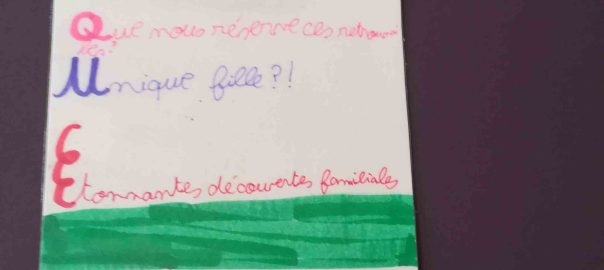 Que nous réserve ces retrouvai
lles?
Unique fille?!
Etonnantes découvertes familiales